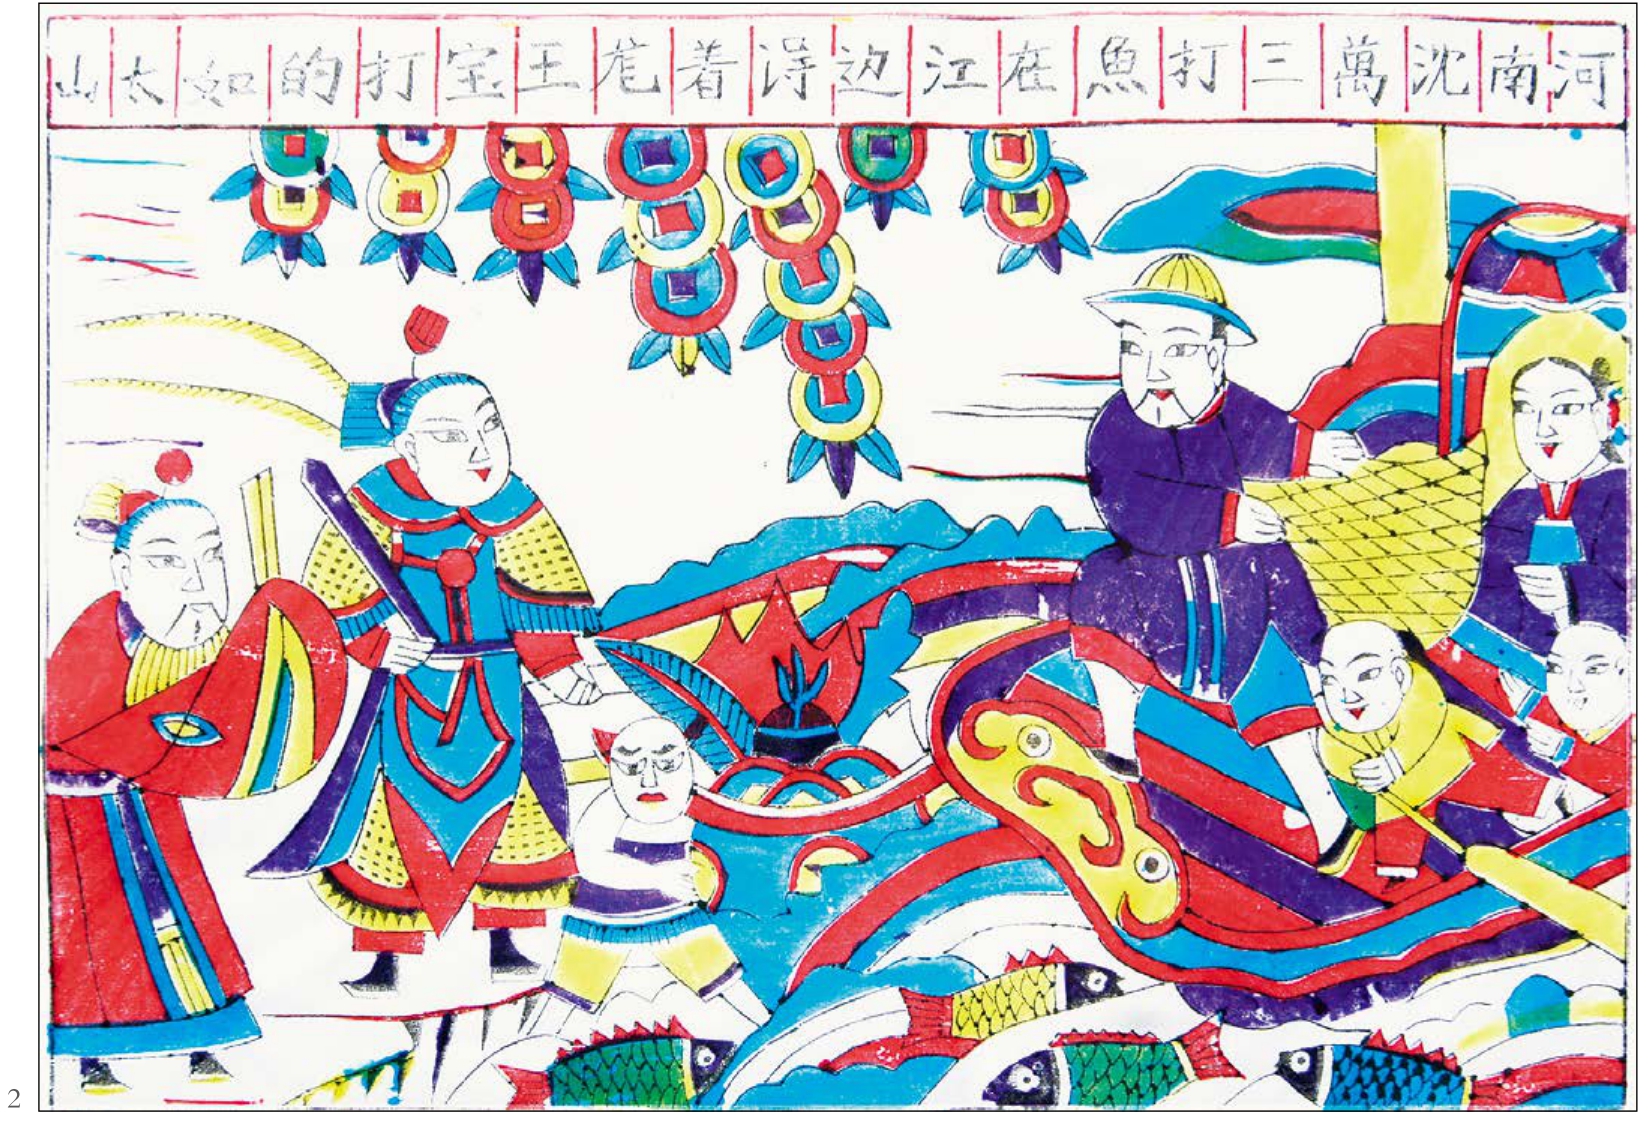 河南沈萬三打魚在江边淂着龙王宝打的如太山
2